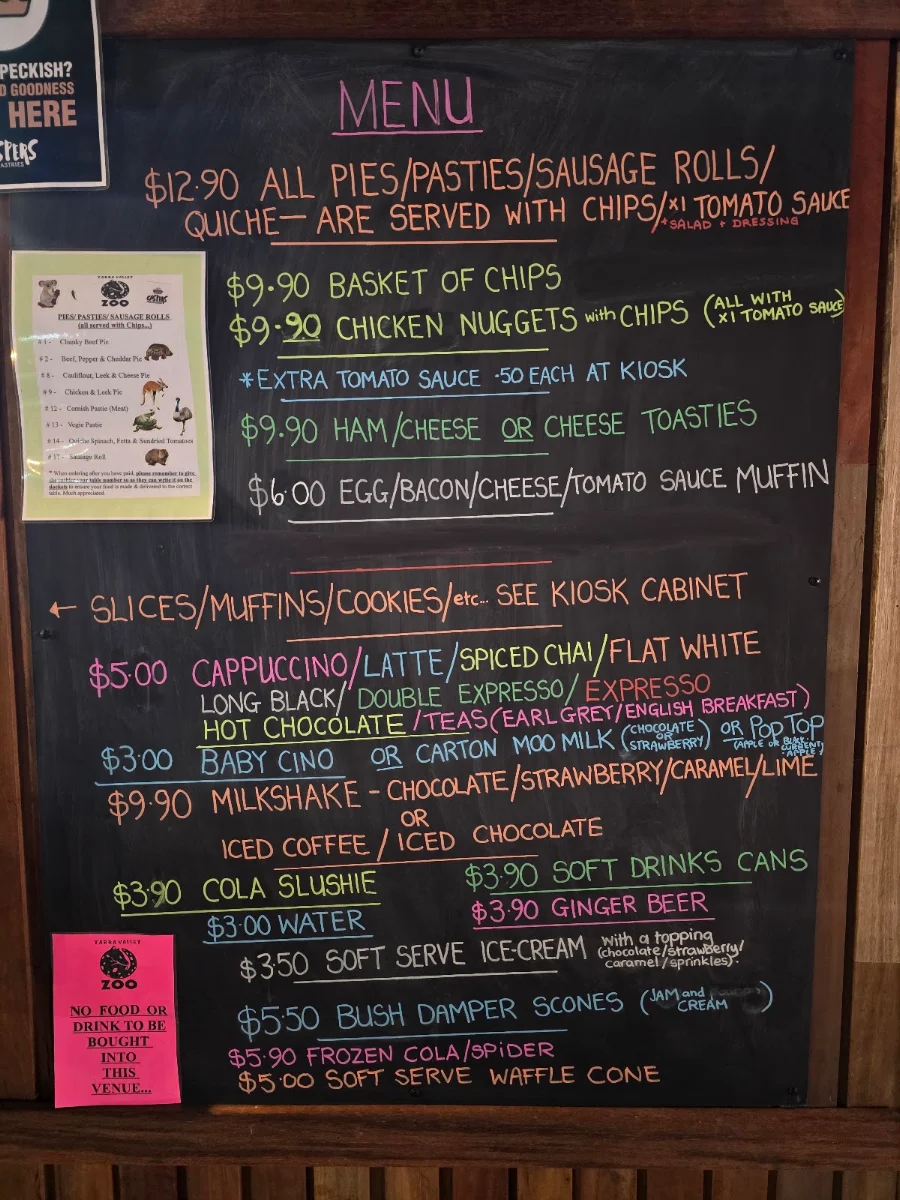 PECKISH?
D GOODNESS
HERE
SPERS
MENU
$12.90 ALL PIES/PASTIES/SAUSAGE ROLLS/
QUICHE— ARE SERVED WITH CHIPS/x1 TOMATO SAUCE
*SALAD + DRESSING
$9.90 BASKET OF CHIPS
$9.90 CHICKEN NUGGETS with CHIPS (ALL WITH
x1 TOMATO SAUCE)
*EXTRA TOMATO SAUCE .50 EACH AT KIOSK
$9.90 HAM/CHEESE OR CHEESE TOASTIES
$6.00 EGG/BACON/CHEESE/TOMATO SAUCE MUFFIN
YARRA VALLEY
ZOO
PIES/ PASTIES/ SAUSAGE ROLLS
(all served with Chips...)
# 1 - Chunky Beef Pie
# 2 - Beef, Pepper & Chedder Pie
# 8 - Cauliflour, Leek & Cheese Pie
# 9 - Chicken & Leek Pie
# 12 - Cornish Pastie (Meat)
# 13 - Vegie Pastie
# 14 - Quiche Spinach, Fetta & Sundried Tomatoes
# 17 - Sausage Roll
* When ordering after you have paid, please remember to give
the cashier your table number so as they can write it on the
dockets to ensure your food is made & delivered to the correct
table. Much appreciated.
← SLICES/MUFFINS/COOKIES/etc... SEE KIOSK CABINET
$5.00 CAPPUCCINO/LATTE/SPICED CHAI/FLAT WHITE
LONG BLACK/ DOUBLE EXPRESSO/ EXPRESSO
HOT CHOCOLATE /TEAS (EARL GREY/ENGLISH BREAKFAST)
$3.00 BABY CINO OR CARTON MOO MILK (CHOCOLATE OR STRAWBERRY) OR POP TOP
(APPLE OR BLACK-CURRENT APPLE)
$9.90 MILKSHAKE - CHOCOLATE/STRAWBERRY/CARAMEL/LIME
OR
ICED COFFEE / ICED CHOCOLATE
$3.90 COLA SLUSHIE
$3.90 SOFT DRINKS CANS
$3.00 WATER
$3.90 GINGER BEER
$3.50 SOFT SERVE ICE-CREAM with a topping
(chocolate/strawberry/
caramel/sprinkles).
$5.50 BUSH DAMPER SCONES (JAM and
CREAM)
$5.90 FROZEN COLA/SPIDER
$5.00 SOFT SERVE WAFFLE CONE
YARRA VALLEY
ZOO
NO FOOD OR
DRINK TO BE
BOUGHT
INTO
THIS
VENUE...